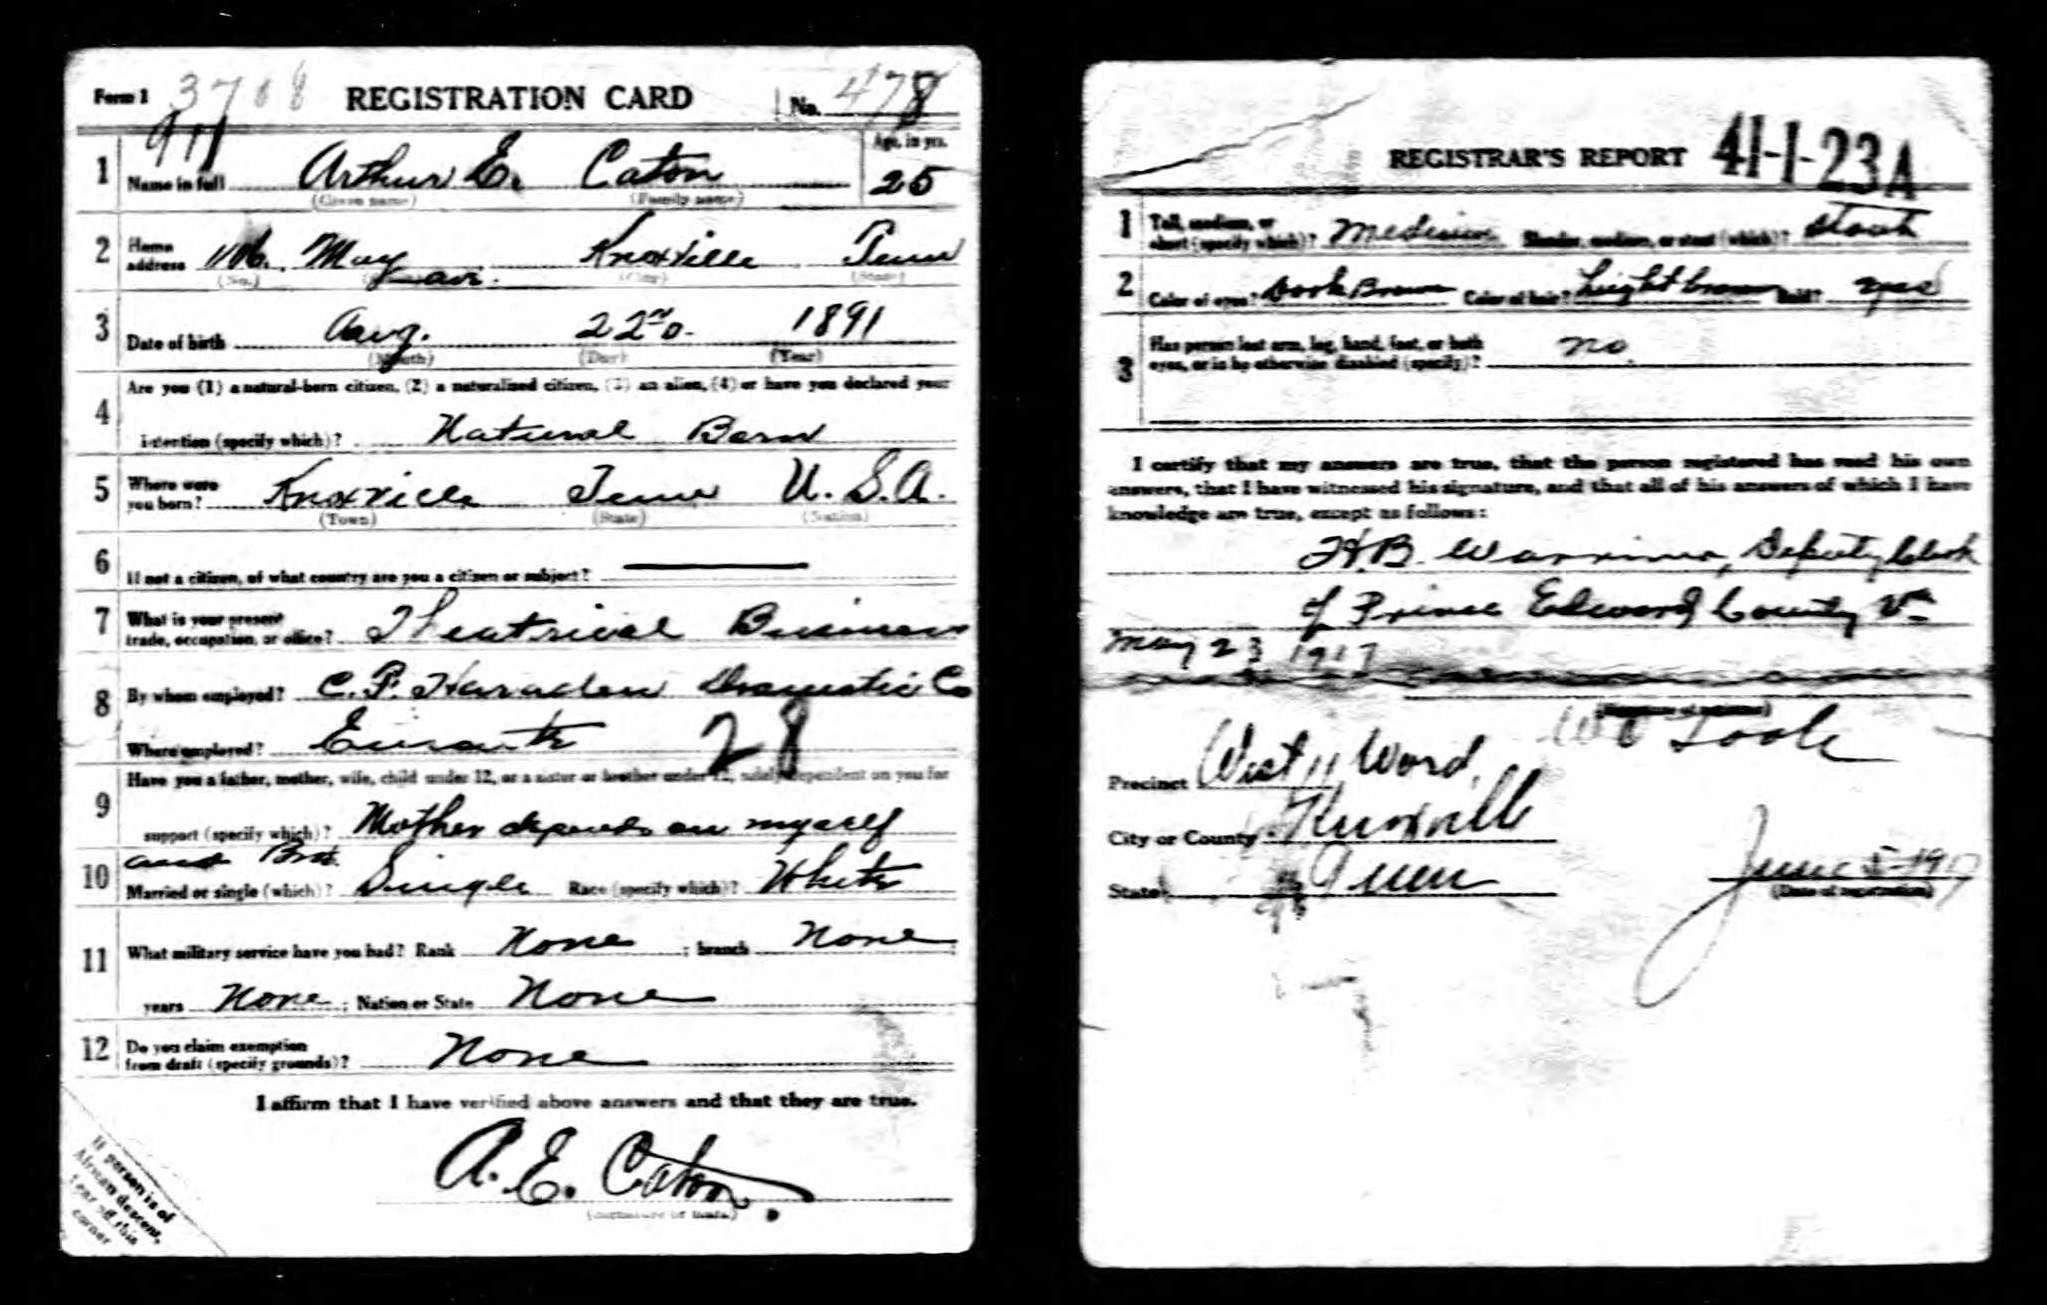 Form 1 3708 REGISTRATION CARD No. 478
Age, in yrs.
1 Name in full Arthur E. Caton 25
(Given name) (Family name)
2 Home address May av. Knoxville Tenn
(No.) (City) (State)
3 Date of birth Aug. 22nd. 1891
(Month) (Day) (Year)
4 Are you (1) a natural-born citizen, (2) a naturalized citizen, (3) an alien, (4) or have you declared your
intention (specify which)? Natural Born
5 Where were you born? Knoxville Tenn U.S.A.
(Town) (State) (Nation)
6 If not a citizen, of what country are you a citizen or subject?
7 What is your present trade, occupation, or office? Theatrical Business
8 By whom employed? C. P. Harraden Dramatic Co
Where employed? Enroute 28
9 Have you a father, mother, wife, child under 12, or a sister or brother under 12, solely dependent on you for
support (specify which)? Mother depends on myself
and Bro.
10 Married or single (which)? Single Race (specify which)? White
11 What military service have you had? Rank None ; branch None ;
years None ; Nation or State None
12 Do you claim exemption from draft (specify grounds)? None
I affirm that I have verified above answers and that they are true.
A. E. Caton.
(Signature or mark)
If person is of
African descent,
tear off this
corner
REGISTRAR'S REPORT 41-1-23A
1 Tall, medium, or short (specify which)? Medium Slender, medium, or stout (which)? Stout
2 Color of eyes? Dark Brown Color of hair? Light brown Bald?
3 Has person lost arm, leg, hand, foot, or both eyes, or is he otherwise disabled (specify)? no.
I certify that my answers are true, that the person registered has read his own
answers, that I have witnessed his signature, and that all of his answers of which I have
knowledge are true, except as follows:
H.B. Warriner, Deputy Clerk
of Prince Edward County Va
May 23 1917
(Signature of registrar)
Precinct West 11 Ward,
City or County Knoxville
State Tenn June 5-1917
(Date of registration)